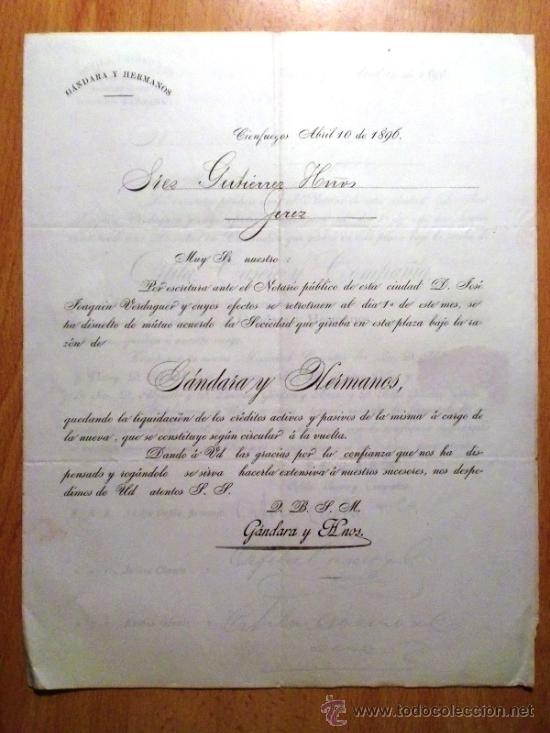 GÁNDARA Y HERMANOS
Cienfuegos Abril 10 de 1896.
Sres Gutierrez Hnos
Jerez
Muy Sr nuestro:
Por escritura ante el Notario público de esta ciudad D. José
Joaquin Verdaguer y cuyos efectos se retrotraen al dia 1º de este mes, se
ha disuelto de mútuo acuerdo la Sociedad que giraba en esta plaza bajo la ra-
zón de
Gándara y Hermanos,
quedando la liquidación de los créditos activos y pasivos de la misma á cargo de
la nueva, que se constituye según circular á la vuelta.
Dando á Vd las gracias por la confianza que nos ha dis-
pensado y rogándole se sirva hacerla extensiva á nuestros sucesores, nos despe-
dimos de Ud atentos S. S.
Q. B. S. M.
Gándara y Hnos.
TC www.todocoleccion.net